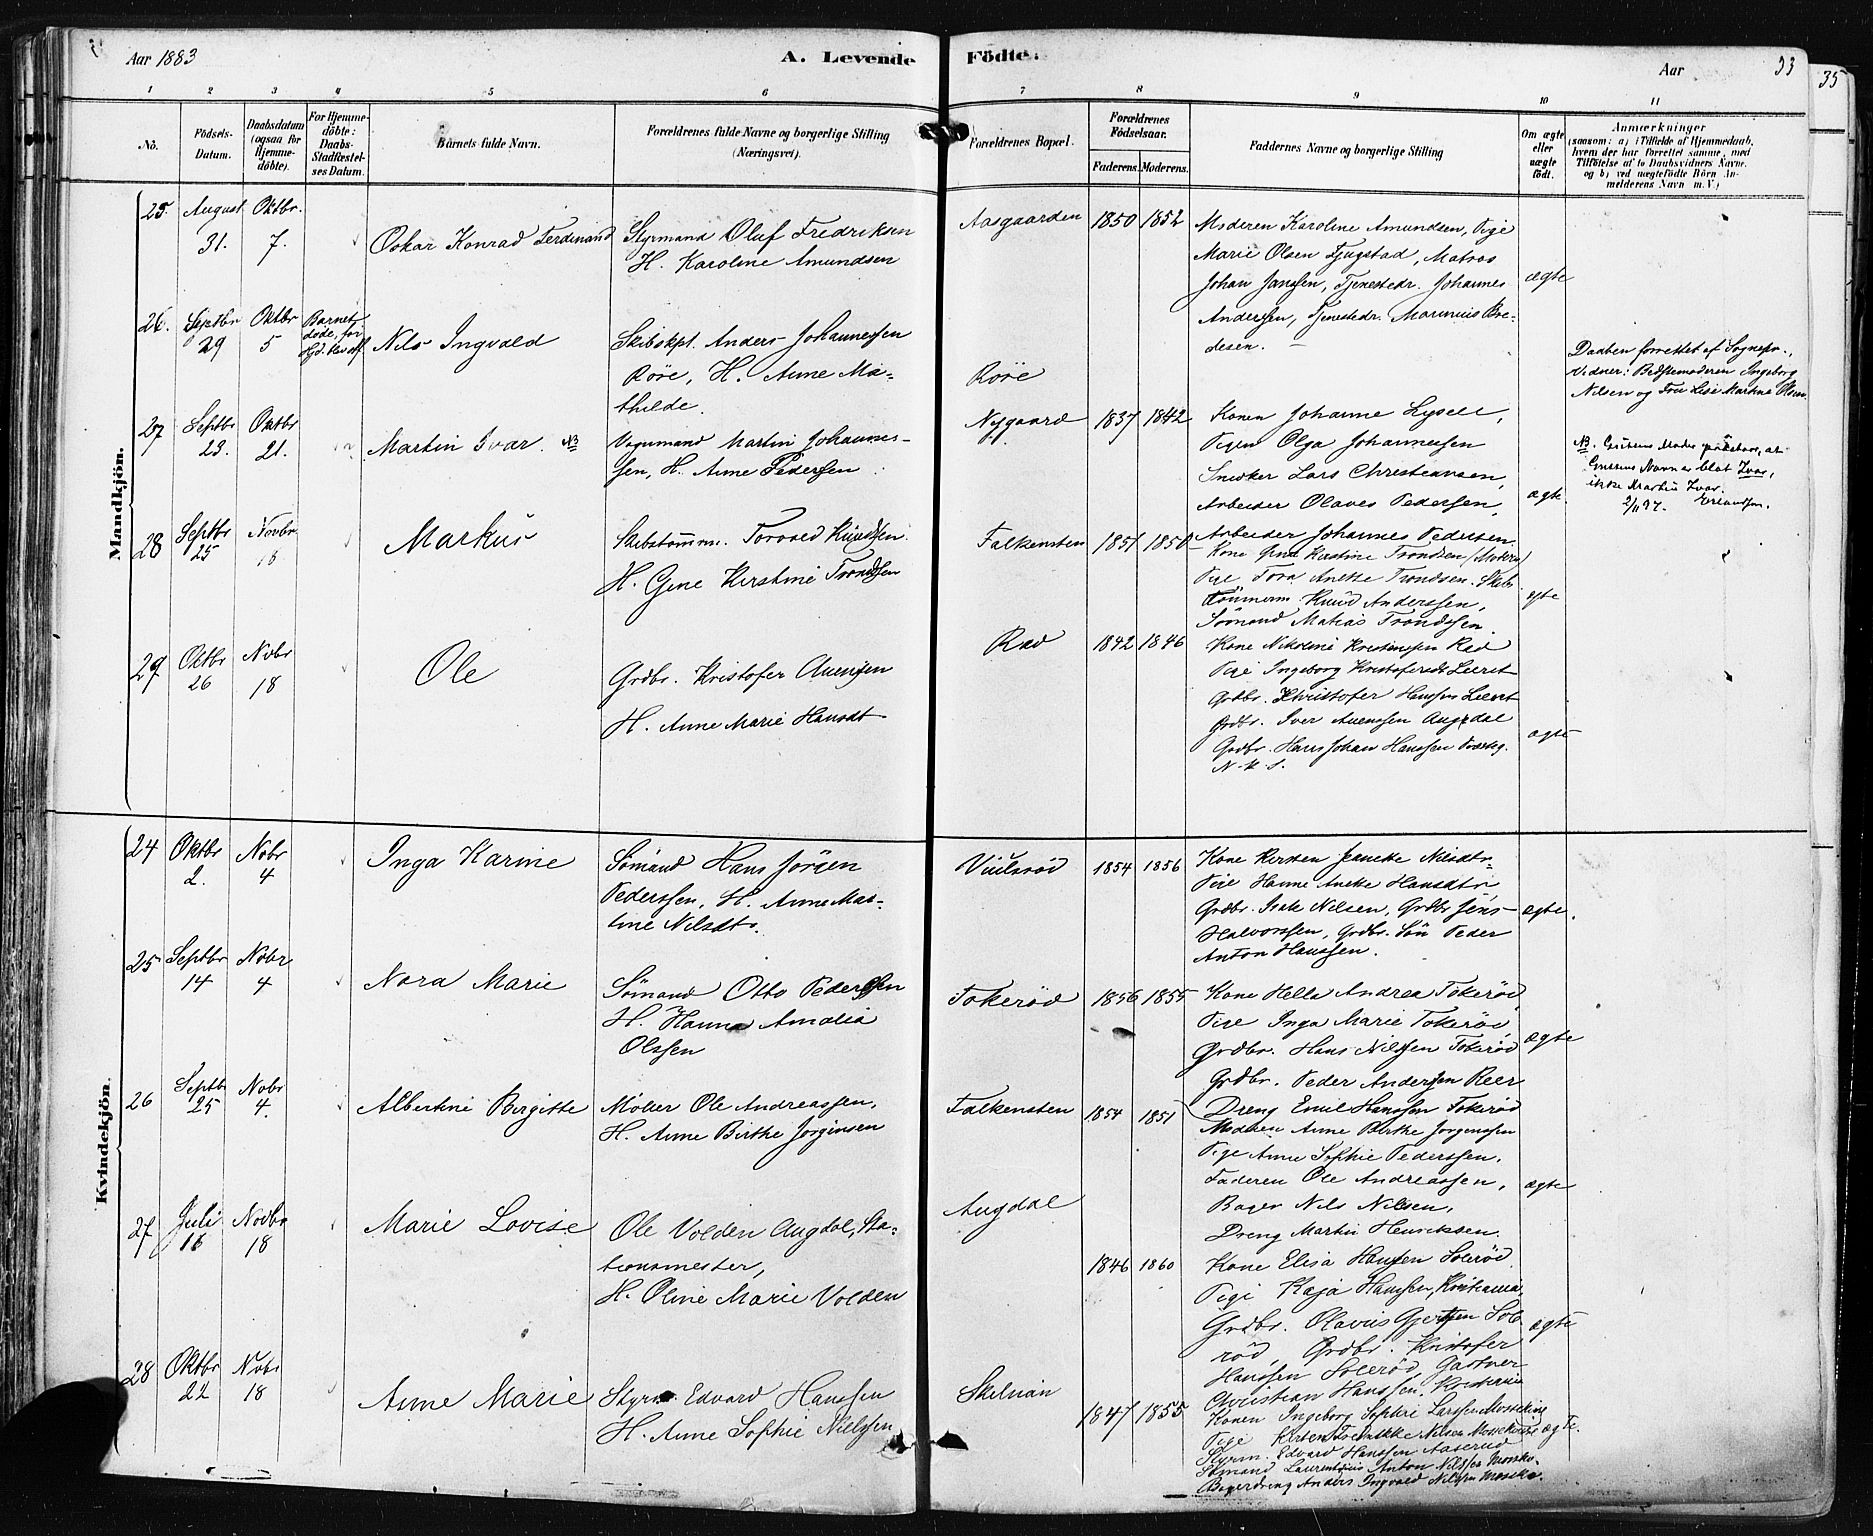 Aar 1883
A. Levende
Födte.
Aar
33
35
1 2 3 4 5 6 7 8 9 10 11
No.
Födsels-
Datum.
Daabsdatum
(ogsaa for
Hjemme-
döbte).
For Hjemme-
döbte:
Daabs-
Stadfæstel-
ses Datum.
Barnets fulde Navn.
Forældrenes fulde Navne og borgerlige Stilling
(Næringsvei).
Forældrenes Bopæl.
Forældrenes
Födselsaar.
Faderens. Moderens.
Faddernes Navne og borgerlige Stilling
Om ægte
eller
uægte
födt.
Anmærkninger
(saasom: a) i Tilfælde af Hjemmedaab,
hvem der har forrettet samme, med
Tilföielse af to Daabsvidners Navne,
og b) ved uægtefödte Börn An-
melderens Navn m. V.)
Mandkjön.
25. August 31. Oktbr. 7.
Oskar Konrad Ferdinand
Styrmand Oluf Fredriksen
H. Karoline Amundsen
Aasgaarden 1850 1852
Moderen Karoline Amundsen, Pige
Marie Olsen Fjugstad, Matros
Johan Janssen, Tjenestedr. Johannes
Anderssen, Tjenestedr. Marinius Bre-
desen.
ægte
26. Septbr 29 Oktbr 5
Barnet
döde, för
Nils Ingvald
Skibskpt. Anders Johannessen
Röre, H. Anne Ma-
thilde.
Röre
Daaben forrettet af Sognepr.,
Vidner: Bedstemoderen Ingeborg
Nilsen og Fru Lise Martine Olsen
27 Septbr 23. Oktbr 21.
Martin Ivar. NB
Vognmand Martin Johannes-
sen, H. Anne Pedersen
Nygaard 1837 1842
Konen Johanne Lysell,
Pigen Olga Johannessen
Snedker Lars Christiansen,
Arbeider Olaves Pedersen,
Arbeider Johannes Pedersen
ægte.
NB. Guttens Moder
Guttens Navn er blot Ivar,
ikke Martin Ivar.
28 Septbr 25 Novbr 18
Markus
Skibstømm. Torvald Knudssen
H. Gine Kirstine Trondssen
Falkensten 1851 1850
Kone Gina Kirstine Trondsen (Moderen)
Pige Tora Anette Trondsen. Skibs
Tömmerm. Knud Anderssen,
Sömand Matias Trondssen
ægte
29 Oktbr 26 Nobr 18
Ole
Grdbr. Kristofer Auensen
H. Anne Marie Hansdt
Rød 1842 1846
Kone Nikoline Kristensen Rød
Pige Ingeborg Kristofersdt Leeret
Grdbr. Christofer Hanssen Leeret
Grdbr. Iver Auenssen Augedal
Grdbr. Hans Johan Hanssen
ægte
Kvindekjön.
24 Oktbr 2. Nobr 4
Inga Karine
Sömand Hans Jörgen
Pederssen, H. Anne Mar-
tine Nilsdt.
Viulsrød 1854 1856
Kone Kirsten Jeanette Nilsdtr
Pige Hanne Aneke Hansdtr
Grdbr. Isak Nilsen, Grdbr Jens
Halvorssen, Grdbr. Sön Peder
Anton Hanssen.
ægte.
25 Septbr 14 Nobr 4
Nora Marie
Sömand Otto Pederssen
H. Hanna Amalia
Olssen
Tokerød 1856 1855
Kone Hella Andrea Tokerød
Pige Inga Marie Tokerød
Grdbr. Hans Nilssen Tokerød
Grdbr. Peder Anderssen Reer
Dreng Emil Hanssen Tokerød
ægte
26 Septbr 25 Nobr 4.
Albertine Birgitte
Möller Ole Andreassen,
H. Anne Birthe Jorginsen
Falkensten 1854 1851
Moderen Anne Birthe Jorgenssen
Pige Anne Sophie Pederssen.
Faderen Ole Andreassen,
Bager Nils Nilsen,
Dreng Martin Henriksen.
ægte
27 Juli 16 Novbr 18
Marie Lovise
Ole Volden Augdal, Sta-
tionsmester,
H. Oline Marie Volden
Augdal
1846 1860
Kone Elisa Hanssen Solerød
Pige Kaja Hanssen, Kristiania
Grdbr. Olavus Gjertsen Sol-
rød, Grdbr. Kristofer
Hanssen Solerød, Gartner
Christian Hanssen, Kristiania
ægte
28 Oktbr 22 Nobr 18
Anne Marie
Styrm. Edvard Hanssen
H. Anne Sophie Nilssen
Skelvian
1847 1855
Konen Ingeborg Sophie Larssen
Pige Kirsten Fredrikke Nilsen
Styrm. Edvard Hanssen Aaserud
Sömand Laurentsius Anton Nilssen
Bagerdreng Anders Ingvald Nilssen
ægte.